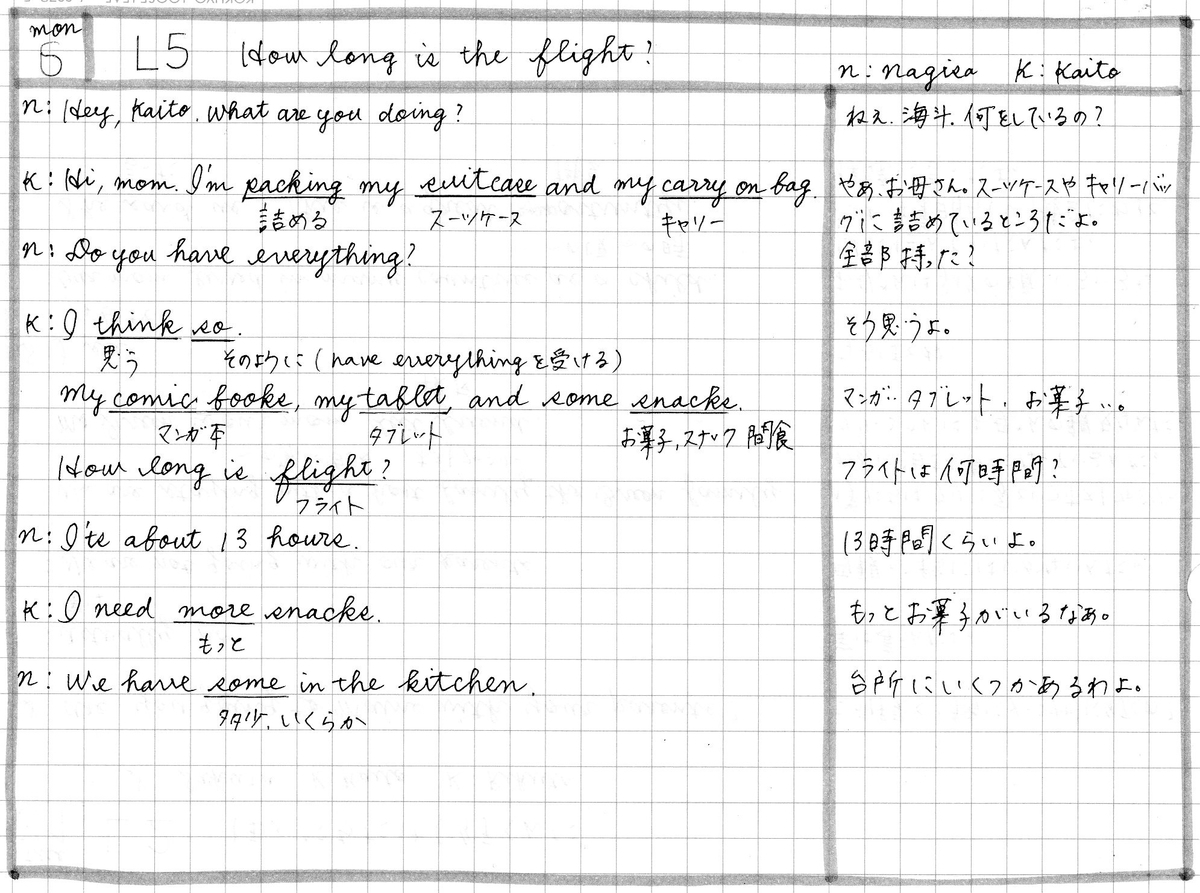 mon
6 L5 How long is the flight?
n: nagisa K: Kaito
n: Hey, Kaito. What are you doing?
ねえ、海斗、何をしているの?
K: Hi, mom. I'm packing my suitcase and my carry on bag.
詰める スーツケース キャリー
やあ、お母さん。スーツケースや キャリーバッ
グに詰めているところだよ。
n: Do you have everything?
全部持った?
K: I think so.
思う そのように(have everythingを受ける)
そう思うよ。
My comic books, my tablet, and some snacks.
マンガ本 タブレット お菓子,スナック 間食
マンガ… タブレット、お菓子…。
How long is flight?
フライト
フライトは何時間?
n: I'ts about 13 hours.
13時間くらいよ。
K: I need more snacks.
もっと
もっとお菓子がいるなあ。
n: We have some in the kitchen.
多少、いくらか
台所にいくつかあるわよ。